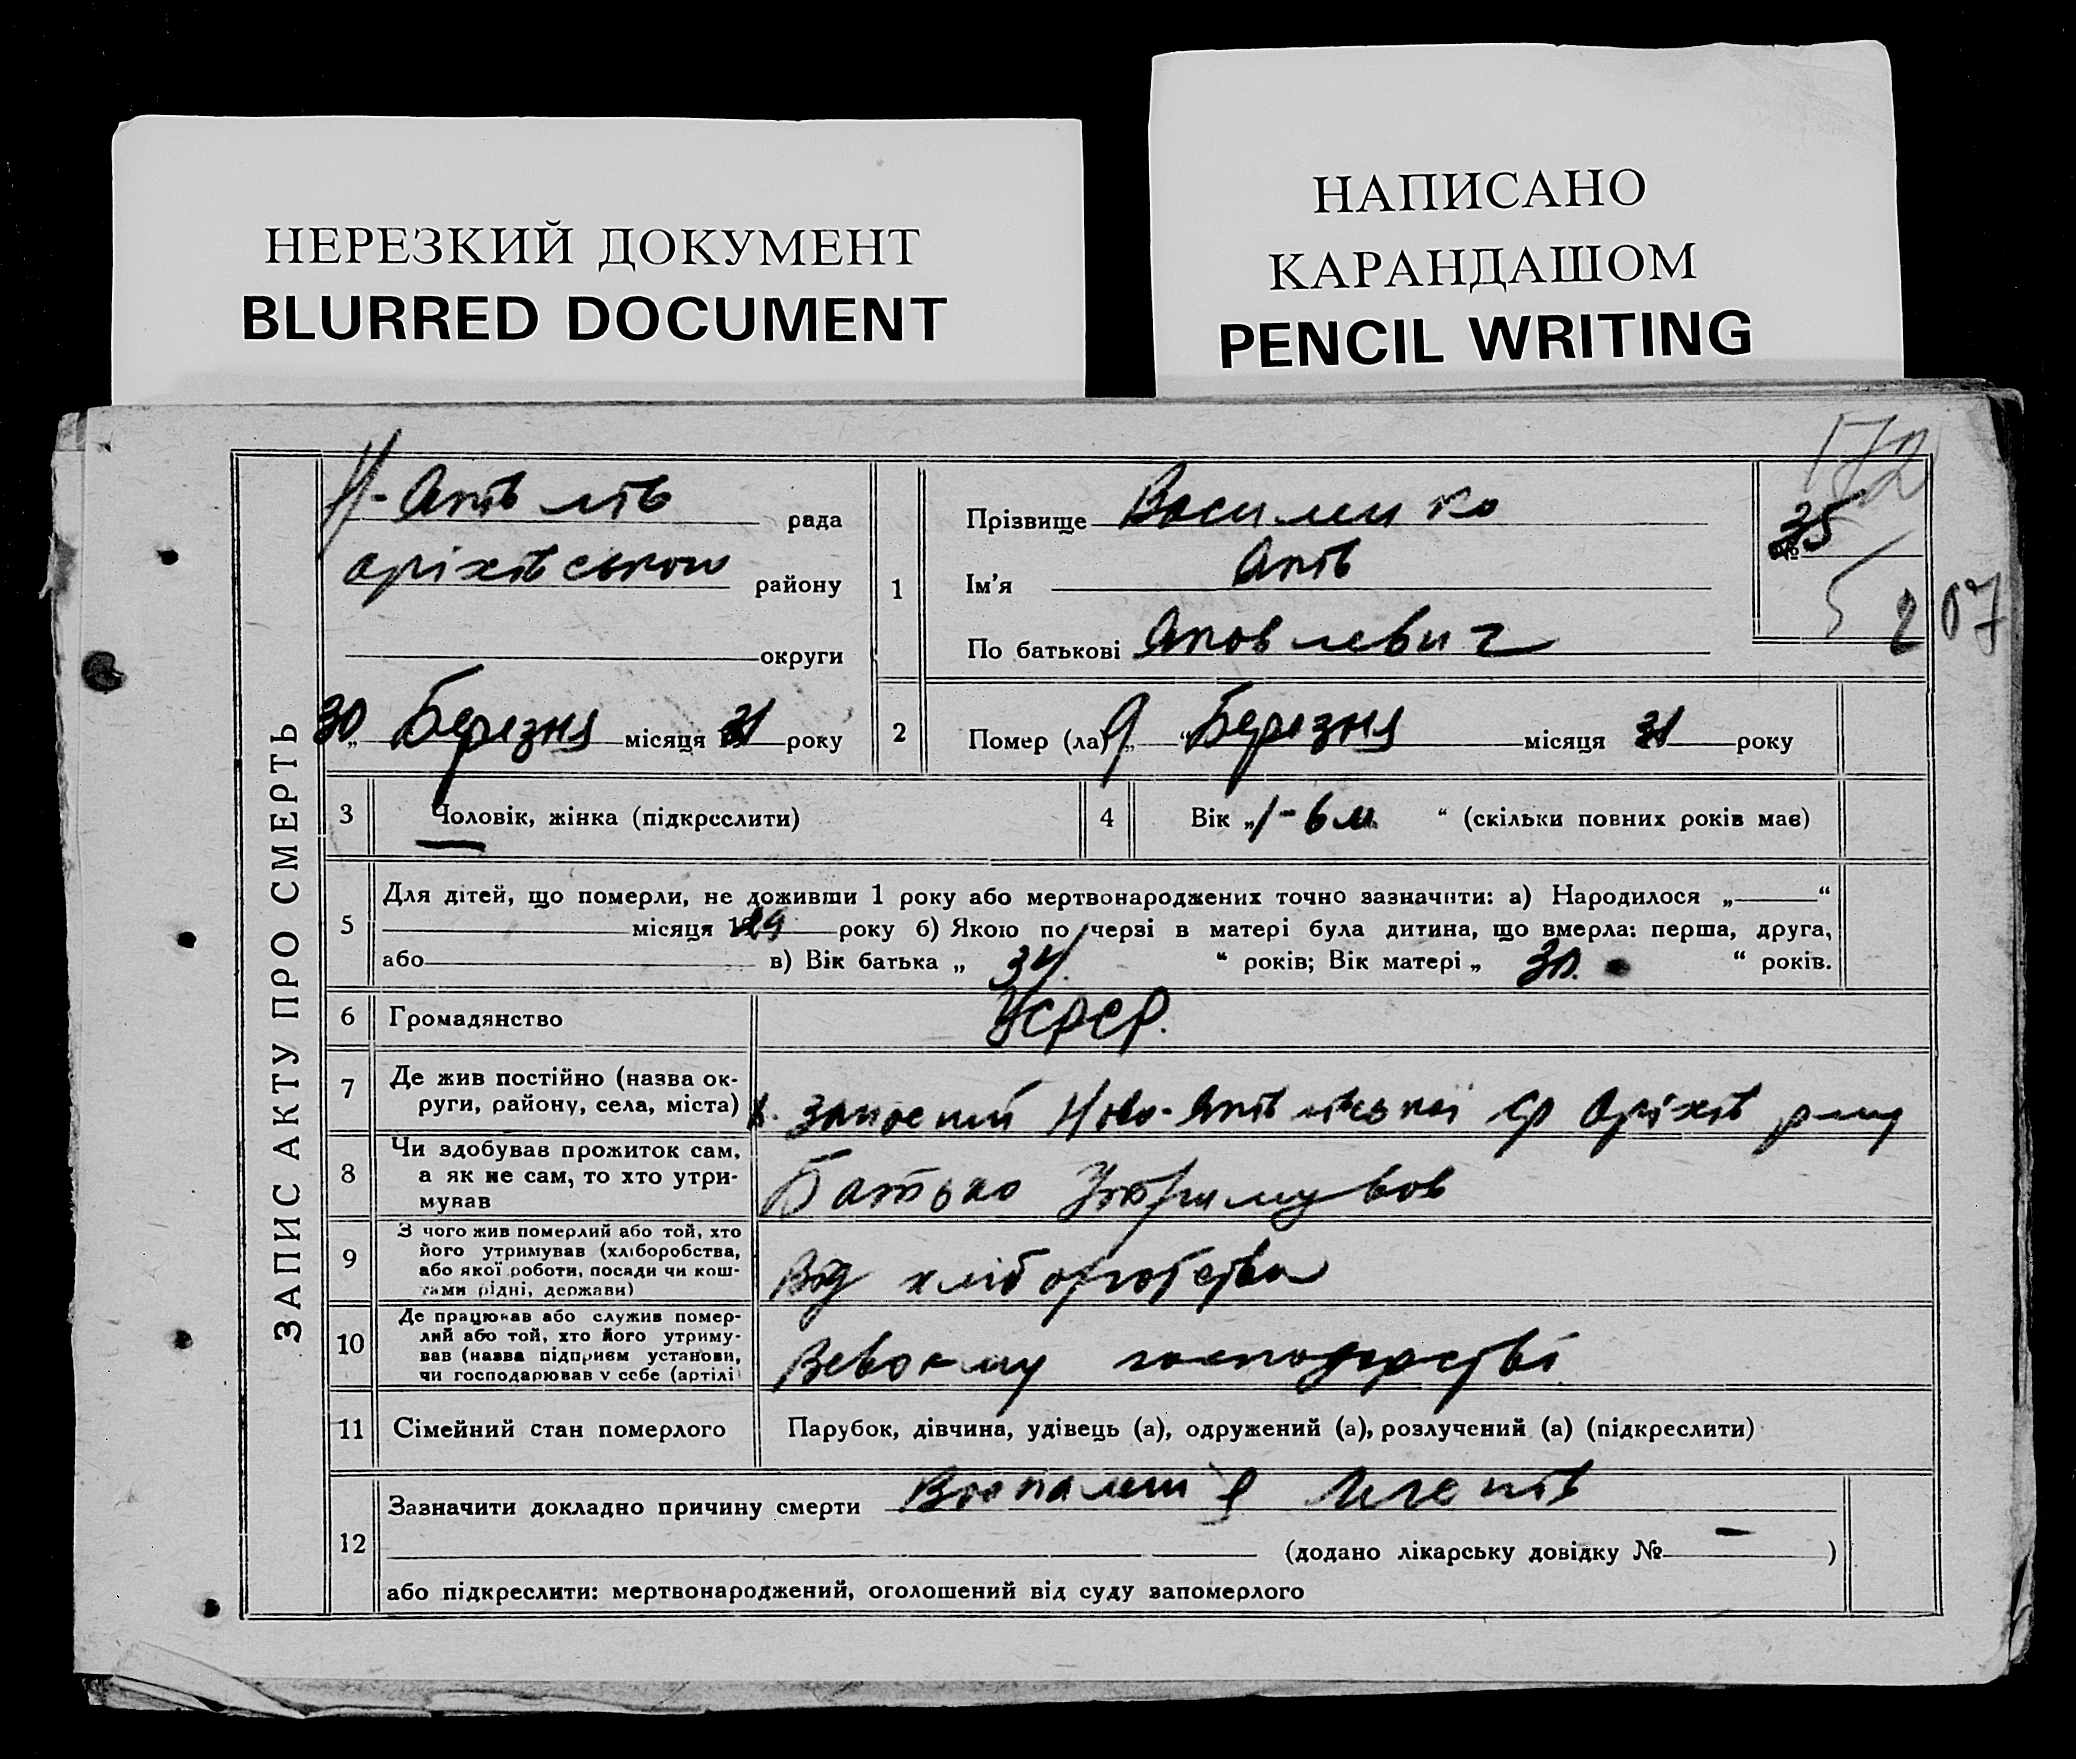 НЕРЕЗКИЙ ДОКУМЕНТ
BLURRED DOCUMENT
НАПИСАНО
КАРАНДАШОМ
PENCIL WRITING
172
ЗАПИС АКТУ ПРО СМЕРТЬ
рада
району
округи
30 „ Березня місяця 31 року
1
Прізвище Василенко
Ім'я Яків
По батькові Яковлевич
№ 35
207
2
Помер (ла) „ 9 “ Березня місяця 31 року
3 Чоловік, жінка (підкреслити)
4 Вік „ 1-6 м. “ (скільки повних років має)
5 Для дітей, що померли, не доживши 1 року або мертвонароджених точно зазначити: а) Народилося „ “
місяця 29 року б) Якою по черзі в матері була дитина, що вмерла: перша, друга,
або в) Вік батька „ 34. “ років; Вік матері „ 30. “ років.
6 Громадянство УСРСР.
7 Де жив постійно (назва ок-
руги, району, села, міста)
8 Чи здобував прожиток сам,
а як не сам, то хто утри-
мував
Батько Утримував
9 З чого жив померлий або той, хто
його утримував (хліборобства,
або якої роботи, посади чи кош-
тами рідні, держави)
Від хліборобства
10 Де працював або служив помер-
лий або той, хто його утриму-
вав (назва підприєм установи,
чи господарював у себе (артілі)
Всвоєму господарстві
11 Сімейний стан померлого Парубок, дівчина, удівець (а), одружений (а), розлучений (а) (підкреслити)
12 Зазначити докладно причину смерти
(додано лікарську довідку № — )
або підкреслити: мертвонароджений, оголошений від суду запомерлого